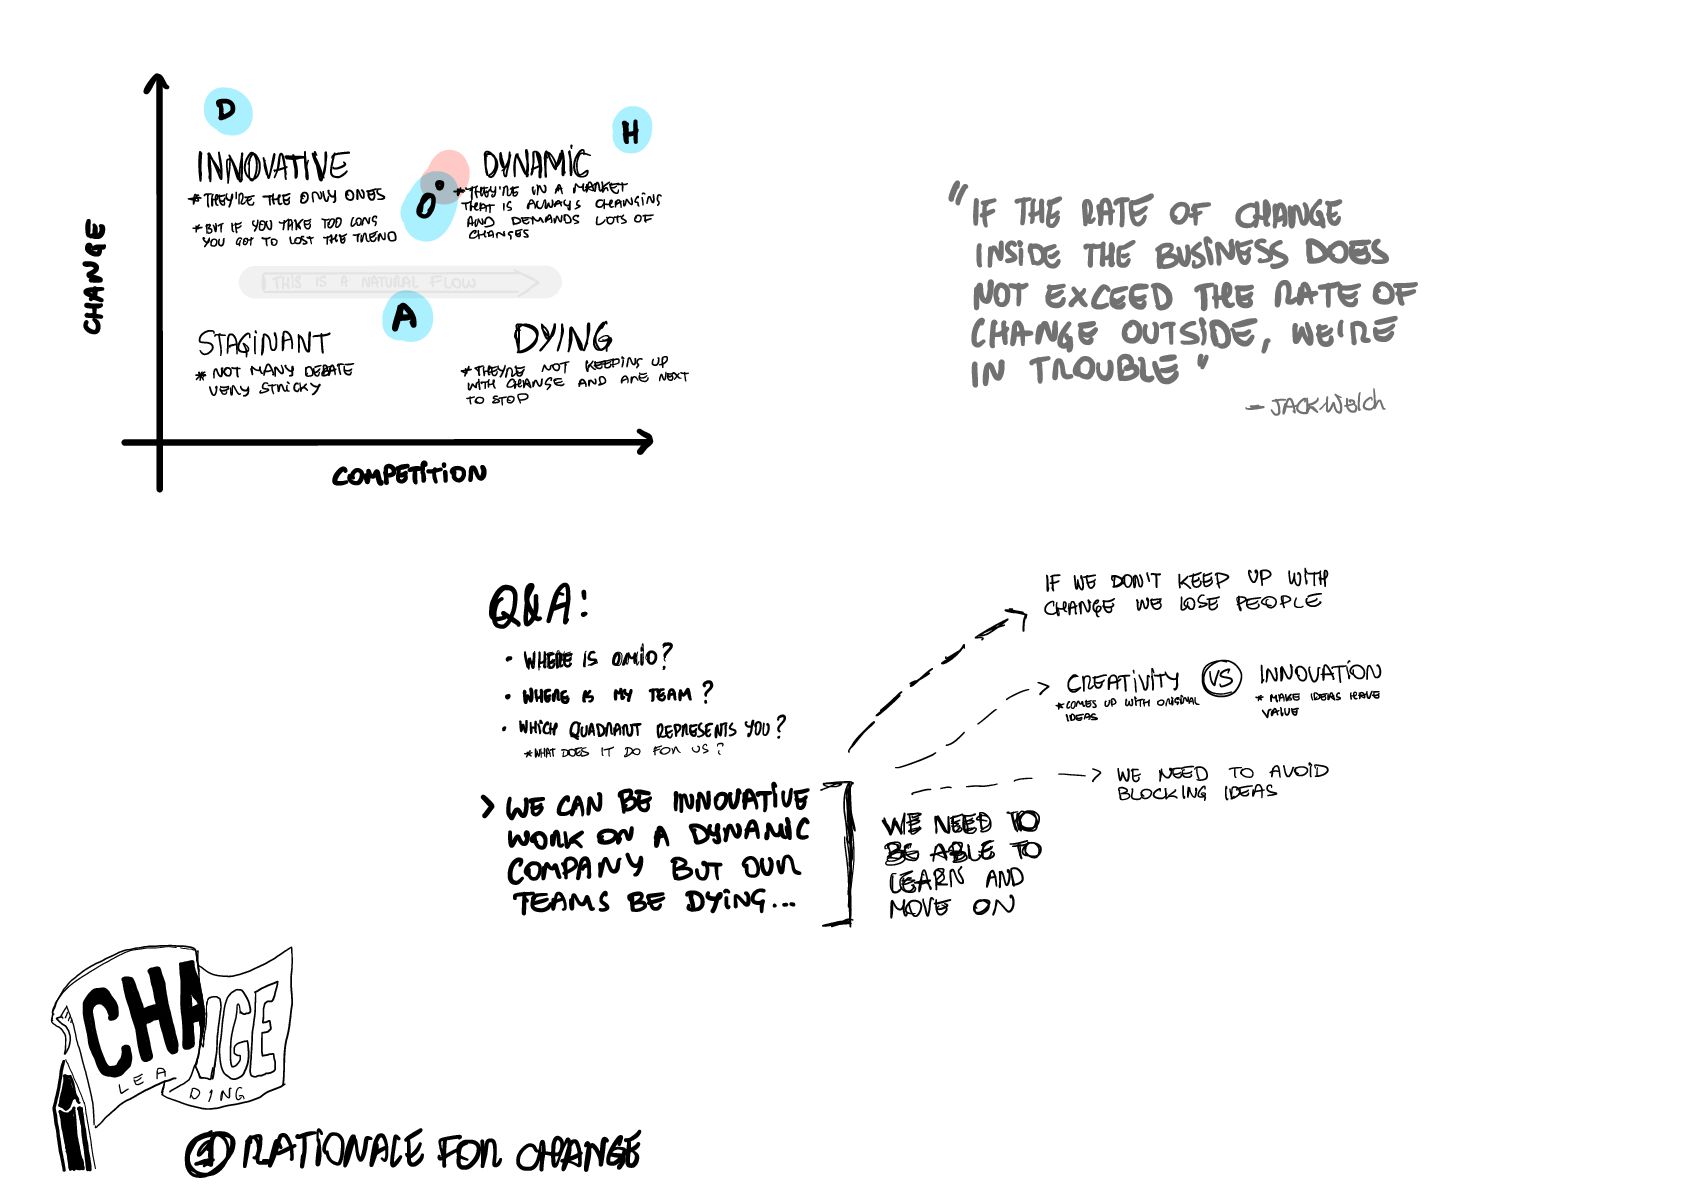 D
H
INNOVATIVE
* THEY'RE THE ONLY ONES
* BUT IF YOU TAKE TOO LONG
YOU GOT TO LOST THE TREND
O
DYNAMIC
* THEY'RE IN A MARKET
THAT IS ALWAYS CHANGING
AND DEMANDS LOTS OF
CHANGES
CHANGE
THIS IS A NATURAL FLOW
A
STAGINANT
* NOT MANY DEBATE
VERY STRICKY
DYING
* THEY'RE NOT KEEPING UP
WITH CHANGE AND ARE NEXT
TO STOP
COMPETITION
"IF THE RATE OF CHANGE
INSIDE THE BUSINESS DOES
NOT EXCEED THE RATE OF
CHANGE OUTSIDE, WE'RE
IN TROUBLE"
- JACK WELCH
Q&A:
• WHERE IS OMIO?
• WHERE IS MY TEAM?
• WHICH QUADRANT REPRESENTS YOU?
* WHAT DOES IT DO FOR US?
> WE CAN BE INNOVATIVE
WORK ON A DYNAMIC
COMPANY BUT OUR
TEAMS BE DYING...
IF WE DON'T KEEP UP WITH
CHANGE WE LOSE PEOPLE
CREATIVITY VS INNOVATION
* COMES UP WITH ORIGINAL
IDEAS
* MAKE IDEAS HAVE
VALUE
WE NEED TO AVOID
BLOCKING IDEAS
WE NEED TO
BE ABLE TO
LEARN AND
MOVE ON
CHANGE
LEADING
1 RATIONALE FOR CHANGE